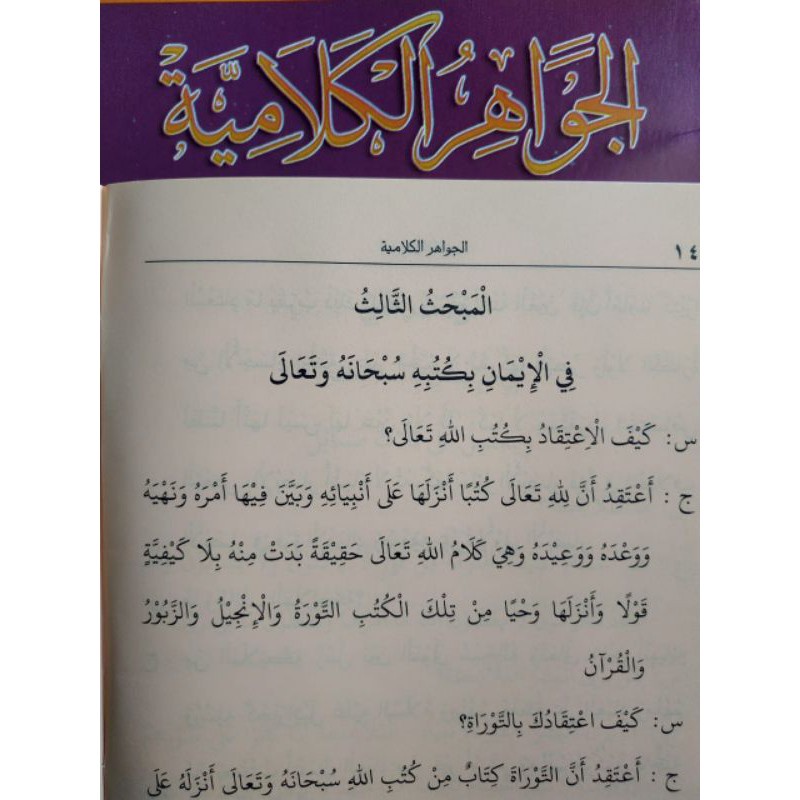 الجَوَاهِرُ الكَلَامِيَّة
١٤
الجواهر الكلامية
الْمَبْحَثُ الثَّالِثُ
فِي الْإِيْمَانِ بِكُتُبِهِ سُبْحَانَهُ وَتَعَالَى
س: كَيْفَ الْاِعْتِقَادُ بِكُتُبِ اللهِ تَعَالَى؟
ج : أَعْتَقِدُ أَنَّ لِلهِ تَعَالَى كُتُبًا أَنْزَلَهَا عَلَى أَنْبِيَائِهِ وَبَيَّنَ فِيْهَا أَمْرَهُ وَنَهْيَهُ
وَوَعْدَهُ وَوَعِيْدَهُ وَهِيَ كَلَامُ اللهِ تَعَالَى حَقِيْقَةً بَدَتْ مِنْهُ بِلَا كَيْفِيَّةٍ
قَوْلًا وَأَنْزَلَهَا وَحْيًا مِنْ تِلْكَ الْكُتُبِ التَّوْرَةُ وَالْإِنْجِيْلُ وَالزَّبُوْرُ
وَالْقُرْآنُ
س: كَيْفَ اعْتِقَادُكَ بِالتَّوْرَاةِ؟
ج : أَعْتَقِدُ أَنَّ التَّوْرَاةَ كِتَابٌ مِنْ كُتُبِ اللهِ سُبْحَانَهُ وَتَعَالَى أَنْزَلَهُ عَلَى